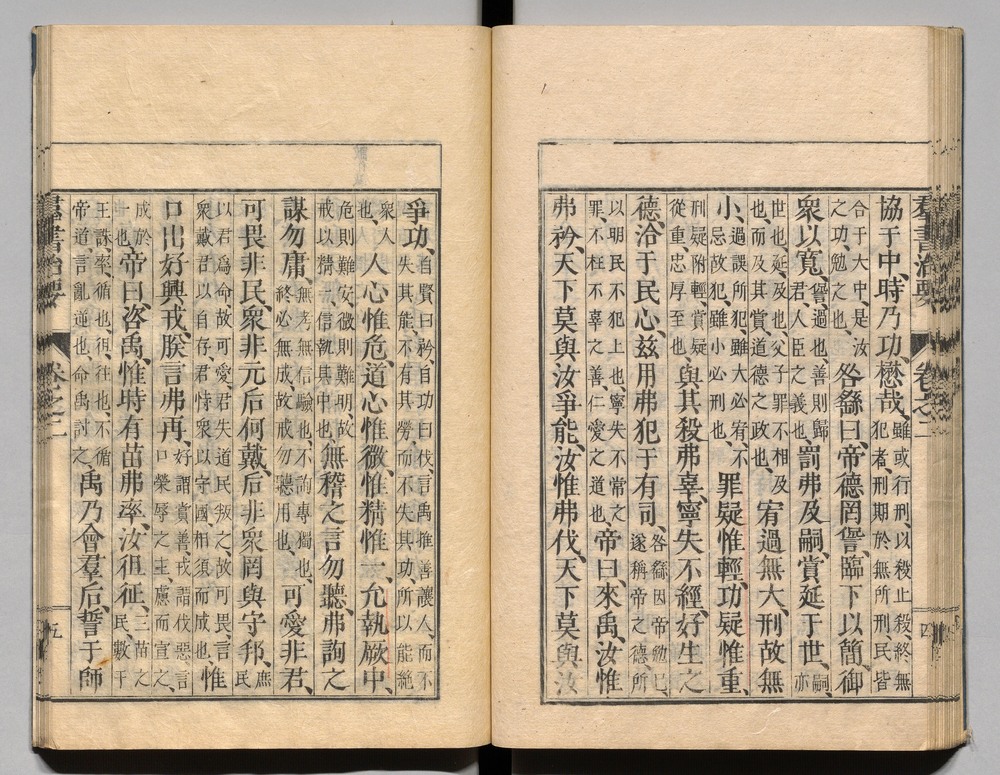 羣書治要 卷之二 四
協于中、時乃功、懋哉、雖或行刑、以殺止殺、終無犯者、刑期於無所刑、民皆
合于大中、是汝之功、勉之也、咎繇曰、帝德罔諐、臨下以簡、御
衆以寬、諐、過也、善則歸君、人臣之義也、罰弗及嗣、賞延于世、嗣、亦
世也、延、及也、父子罪不相及也、而及其賞、道德之政也、宥過無大、刑故無
小、過誤所犯、雖大必宥、不忌故犯、雖小必刑也、罪疑惟輕、功疑惟重、
刑疑附輕、賞疑從重、忠厚至也、與其殺弗辜、寧失不經、好生之
德、洽于民心、茲用弗犯于有司、咎繇因帝勉己、遂稱帝之德、所
以明民不犯上也、寧失不常之罪、不枉不辜之善、仁愛之道也、帝曰、來禹、汝惟
弗矜、天下莫與汝爭能、汝惟弗伐、天下莫與汝
爭功、自賢曰矜、自功曰伐、言禹推善讓人、而不失其能、不有其勞、而不失其功、所以能絶
衆人也、人心惟危、道心惟微、惟精惟一、允執厥中、
危則難安、微則難明、故戒以精一、信執其中也、無稽之言勿聽、弗詢之
謀勿庸、無考、無信驗也、不詢、專獨也、終必無成、故戒勿聽用也、可愛非君、
可畏非民、衆非元后何戴、后非衆罔與守邦、庶民
以君爲命、故可愛、君失道、民叛之、故可畏、言衆戴君以自存、君恃衆以守國、相須而成也、惟
口出好興戎、朕言弗再、好謂賞善、戎謂伐惡、言口榮辱之主、慮而宣之、
成於一也、帝曰、咨禹、惟時有苗弗率、汝徂征、三苗之民、數干
王誅、率、循也、徂、往也、不循帝道、言亂逆也、命禹討之、禹乃會羣后、誓于師
羣書治要 卷之二 五